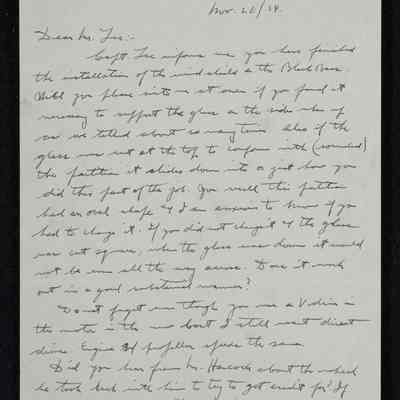 Nov. 26/34.
Dear Mr. Lee:-
Capt. Lee informs me you have finished
the installation of the wind shield on the Black Bass.
Will you please write me at once if you found it
necessary to support the glass on the sides when up
as we talked about so many times. Also if the
glass was cut at the top to conform with (rounded)
the partition it slides down into or just how you
did this part of the job. You recall this partition
had an oval shape & I am anxious to know if you
had to change it. If you did not change it & the glass
was cut square, when the glass was down it would
not be even all the way across. Does it work
out in a good substantial manner?
Do not forget even though you use a V drive in
the motor in the new boat I still want direct
drive. Engine & propeller speeds the same.
Did you hear from Mr. Hancock about the wheel
he took back with him to try to get credit for? If